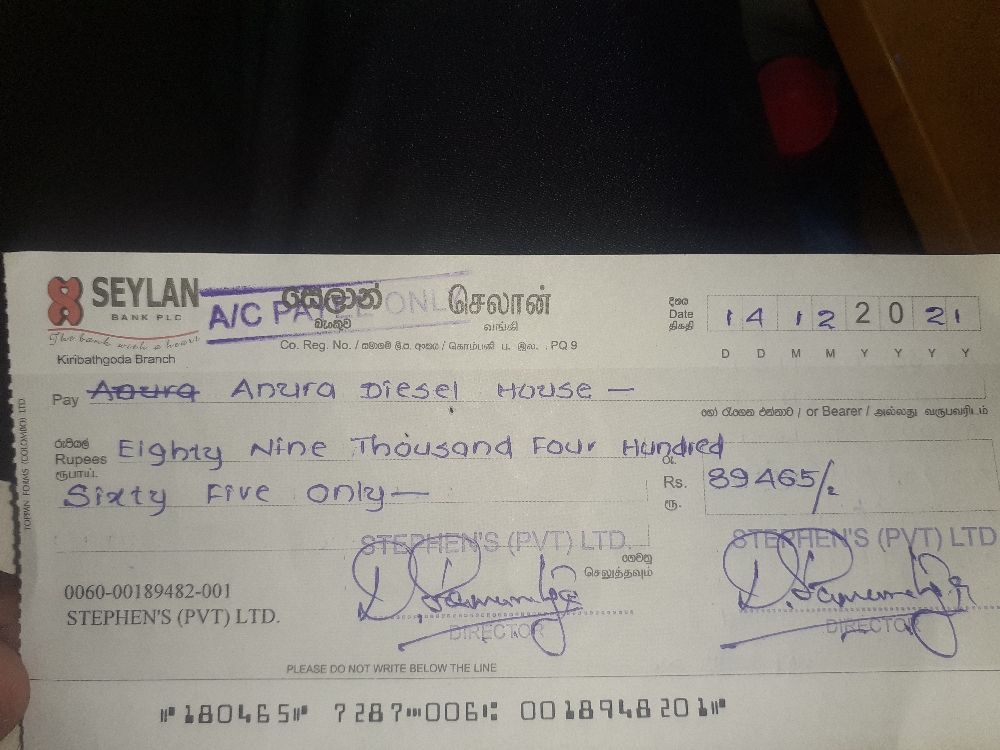 SEYLAN
BANK PLC
The bank with a heart
Kiribathgoda Branch
A/C PAYEE ONLY
සෙලාන්
බැංකුව
செலான்
வங்கி
Co. Reg. No. / සමාගම් ලි.ප. අංකය / கொம்பனி ப. இல. . PQ 9
දිනය
Date
திகதி
14 12 2021
D D M M Y Y Y Y
Pay Anura Diesel House —
හෝ රැගෙන එන්නාට / or Bearer / அல்லது வருபவரிடம்
රුපියල්
Rupees
ரூபாய்
Eighty Nine Thousand Four Hundred
Sixty Five Only —
රු.
Rs.
ரூ.
89465/=
TOPPAN FORMS (COLOMBO) LTD.
ගෙවනු
செலுத்தவும்
STEPHEN'S (PVT) LTD.
DIRECTOR
STEPHEN'S (PVT) LTD
DIRECTOR
0060-00189482-001
STEPHEN'S (PVT) LTD.
PLEASE DO NOT WRITE BELOW THE LINE
⑈180465⑈ 7287⑉006⑆ 0018948201⑈